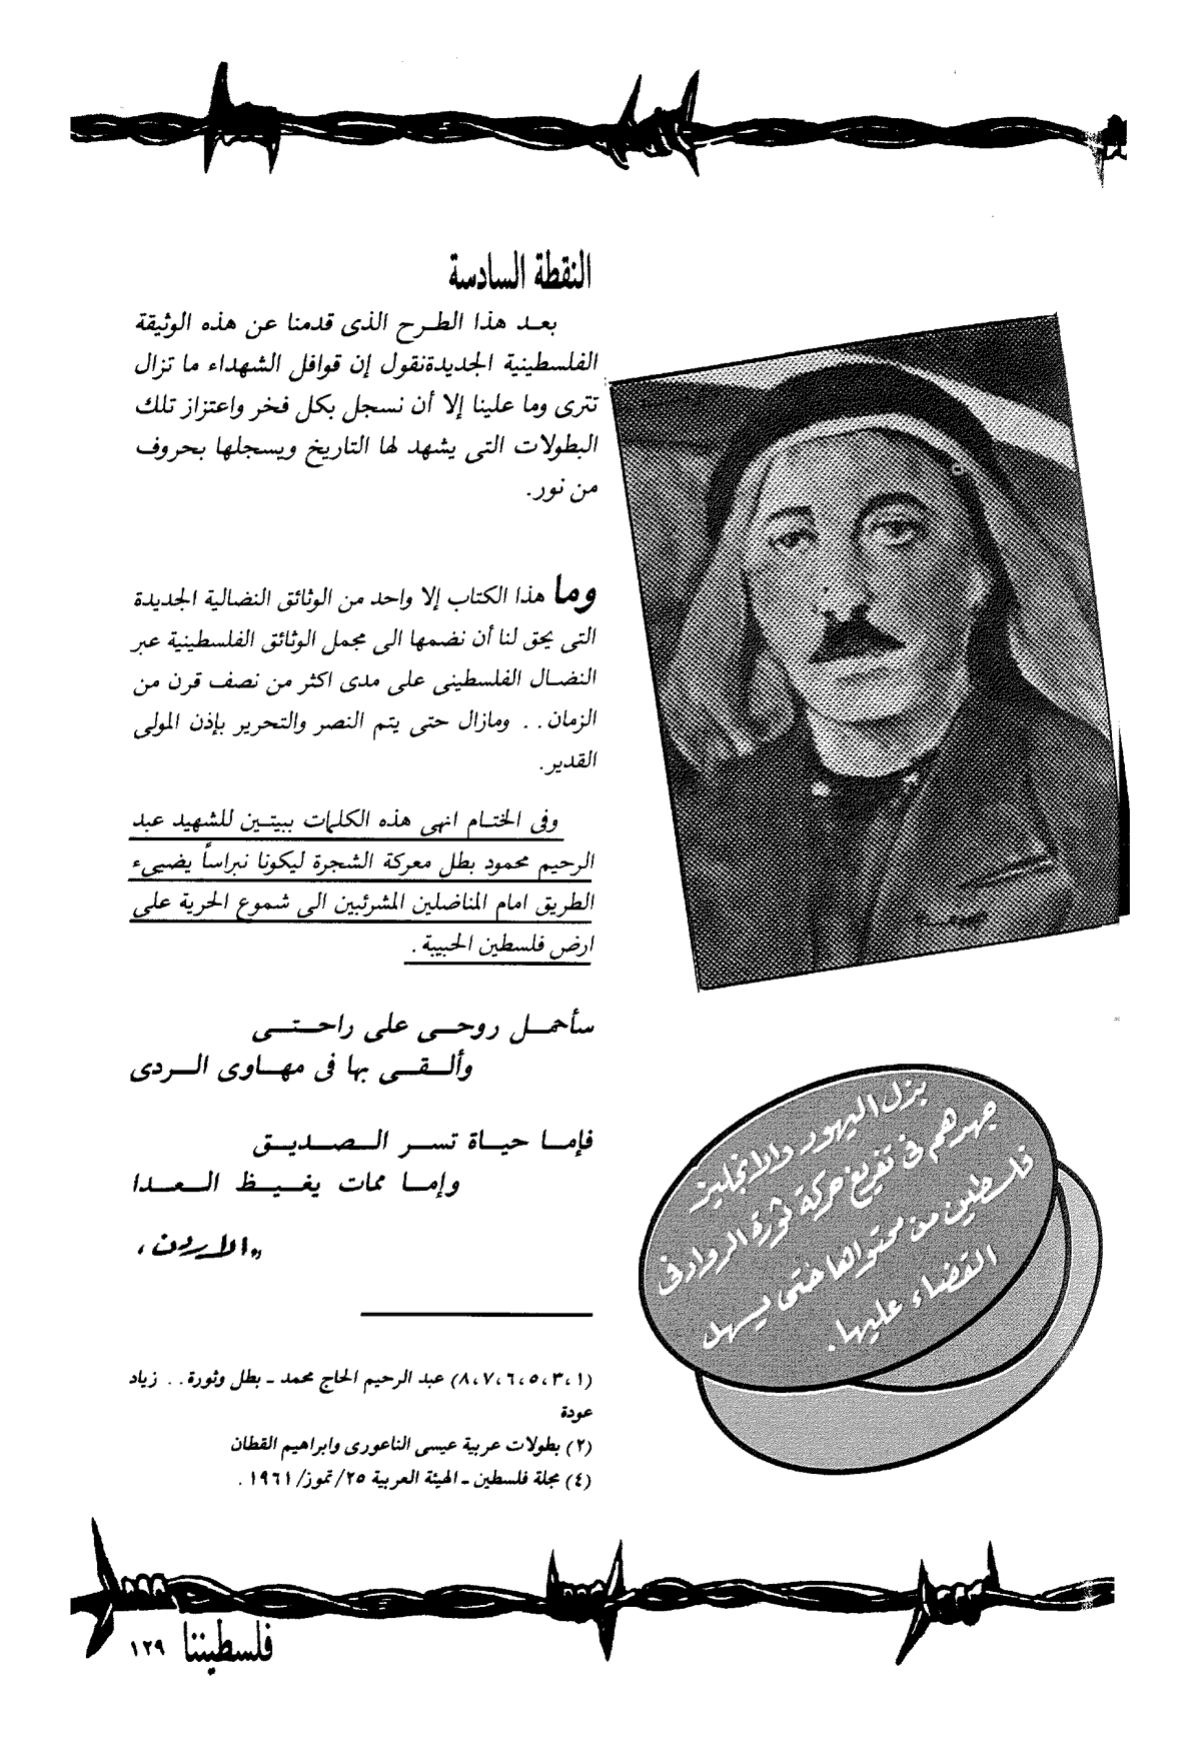 النقطة السادسة
بعـد هذا الطـرح الذى قدمنا عن هذه الوثيقة
الفلسطينية الجديدةنقول إن قوافل الشهداء ما تزال
تترى وما علينا إلا أن نسجل بكل فخر واعتزاز تلك
البطولات التى يشهد لها التاريخ ويسجلها بحروف
من نور.
وما هذا الكتاب إلا واحد من الوثائق النضالية الجديدة
التى يحق لنا أن نضمها الى مجمل الوثائق الفلسطينية عبر
النضـال الفلسطينى على مدى اكثر من نصف قرن من
الزمان. . ومازال حتى يتم النصر والتحرير بإذن المولى
القدير.
وفى الختـام انهى هذه الكلمات ببيتـين للشهيد عبد
الرحيم محمود بطل معركة الشجرة ليكونا نبراساً يضيىء
الطريق امام المناضلين المشرئبين الى شموع الحرية على
ارض فلسطين الحبيبة.
سأحمـل روحـى على راحـتـى
وألـقـى بها فى مهـاوى الـردى
فإمـا حيـاة تسـر الـصـديـق
وإمـا ممات يغـيـظ الـعـدا
«الاردن،
بزل اليهود والانجليز
جهدهم فى تفريغ حركة ثورة الرواد فى
فلسطين من محتواها حتى يسهل
القضاء عليها.
(١،٣،٥،٦،٧،٨) عبد الرحيم الحاج محمد ـ بطل وثورة. . زياد
عودة
(٢) بطولات عربية عيسى الناعورى وابراهيم القطان
(٤) مجلة فلسطين ـ الهيئة العربية ٢٥/تموز/١٩٦١.
فلسطيننا ١٢٩